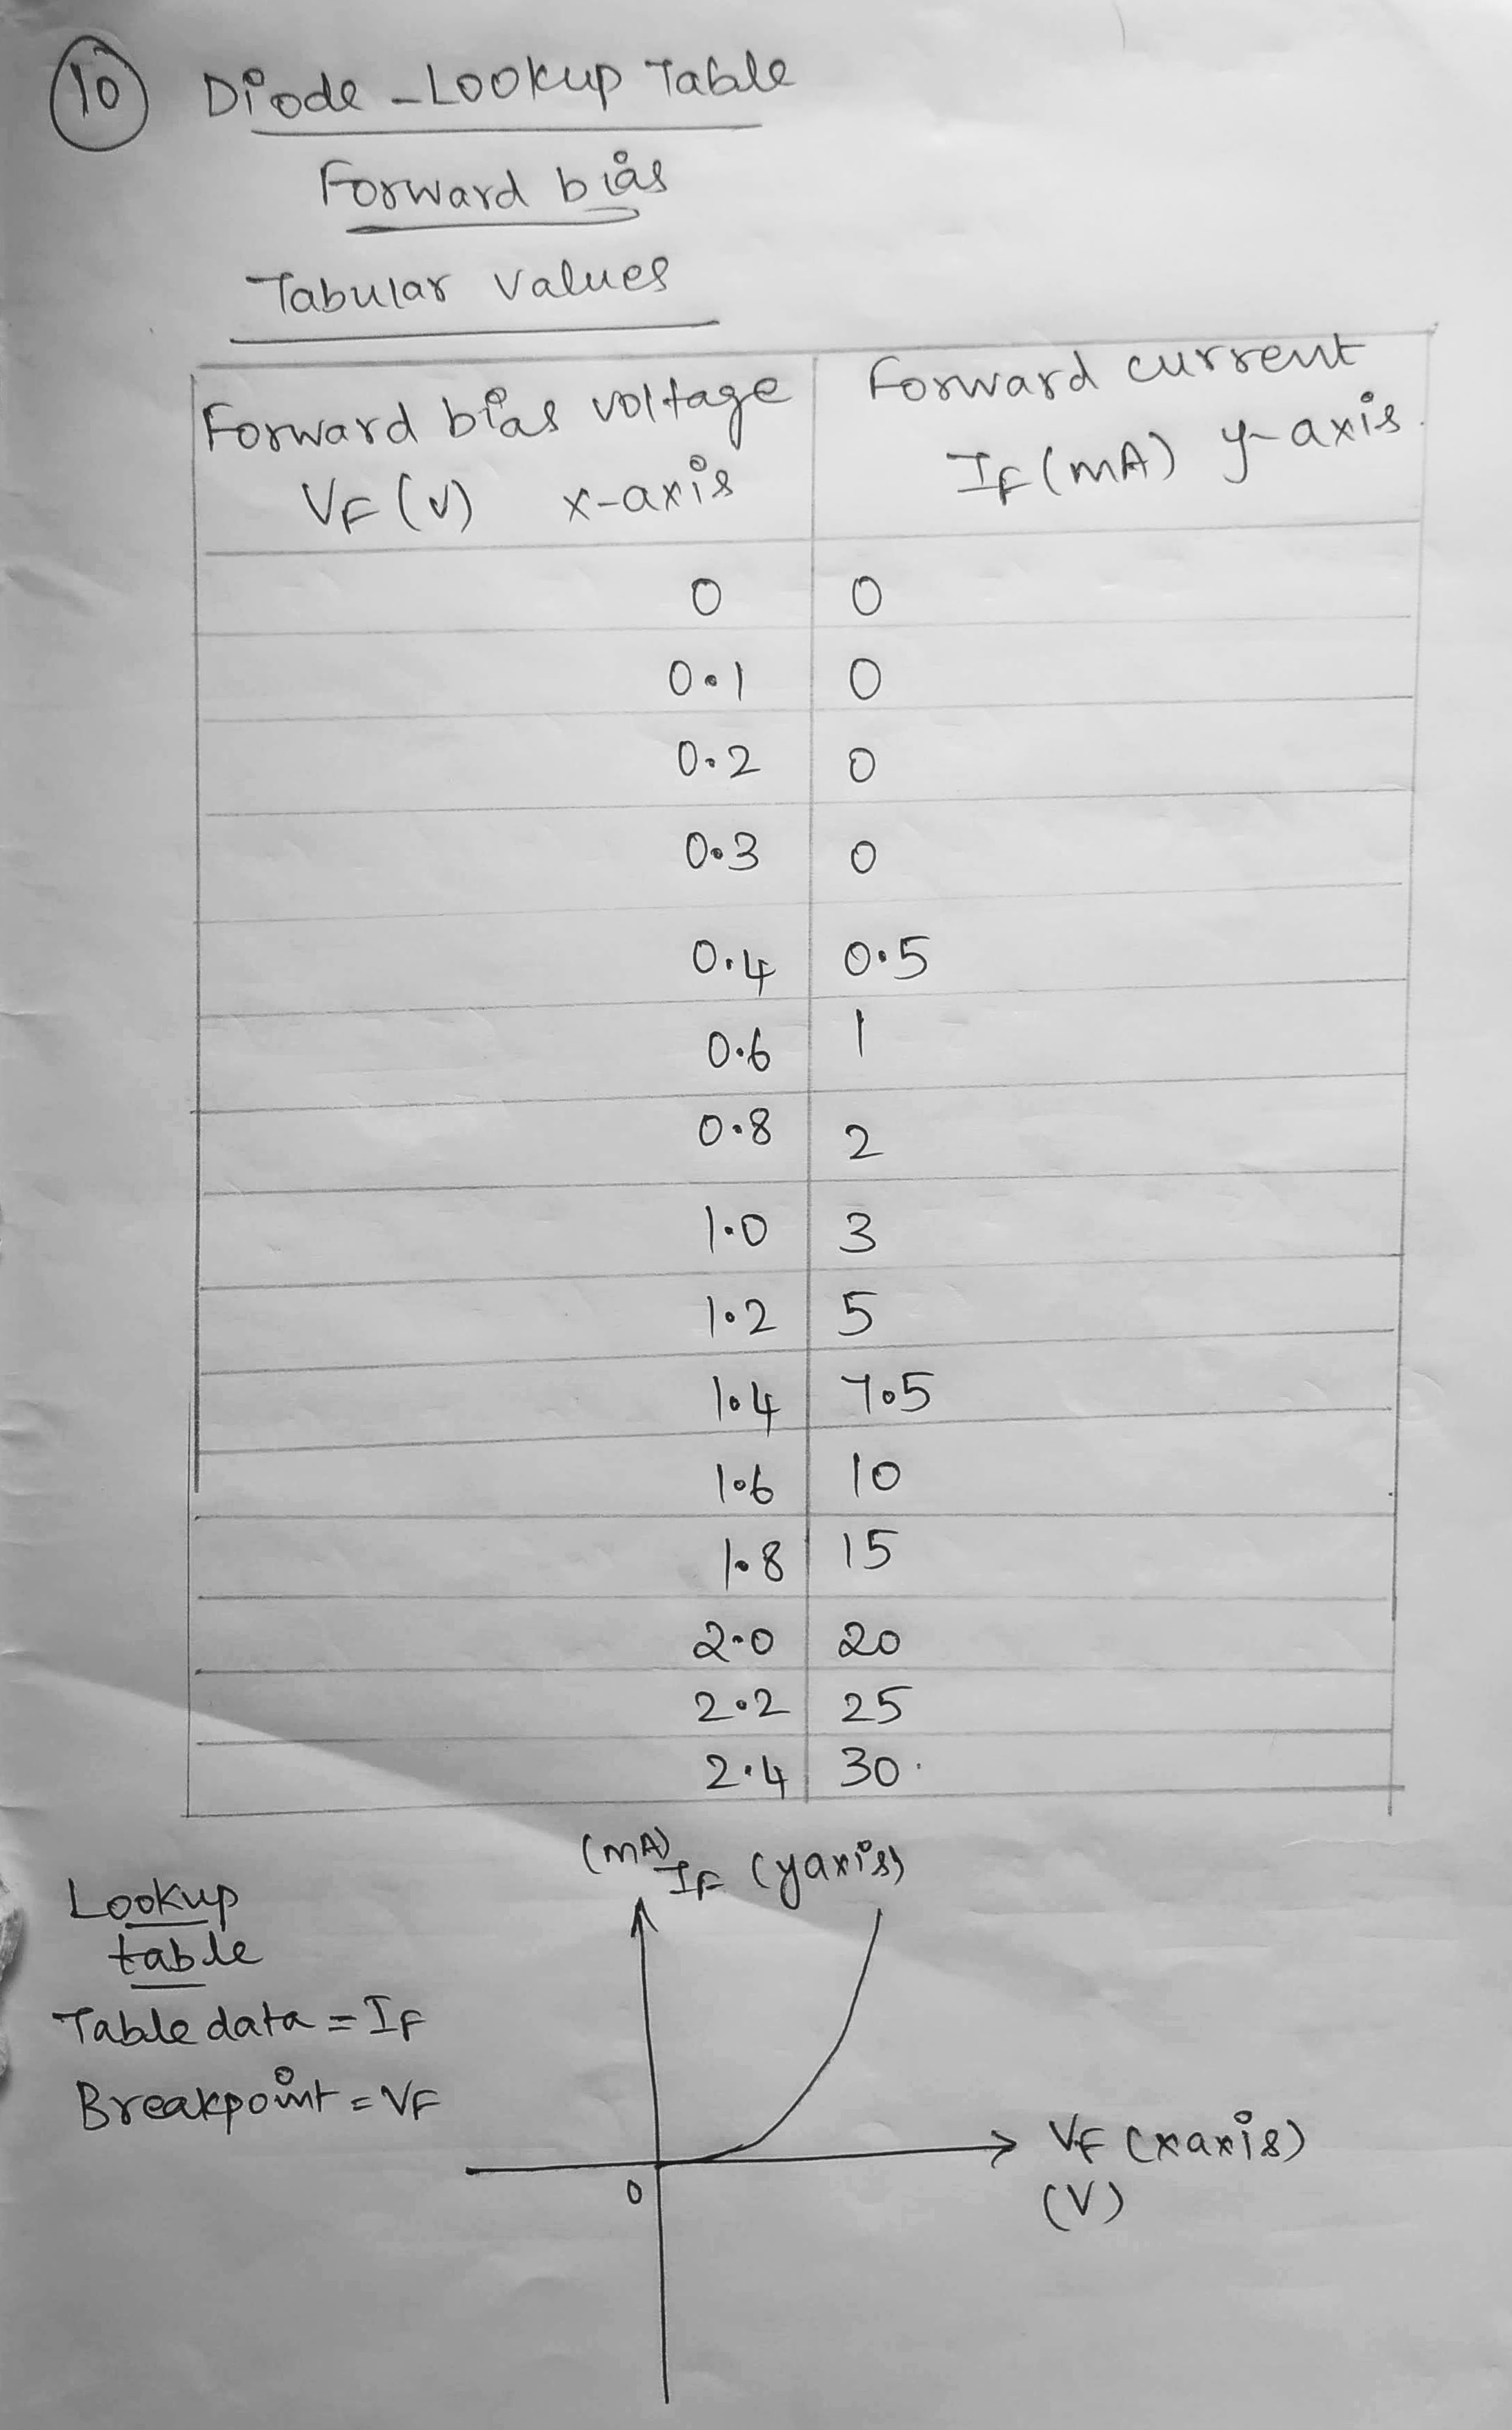 10 Diode - Lookup Table
Forward bias
Tabular values
Forward bias voltage
VF (V) x-axis
Forward current
IF (mA) y-axis.
0 0
0.1 0
0.2 0
0.3 0
0.4 0.5
0.6 1
0.8 2
1.0 3
1.2 5
1.4 7.5
1.6 10
1.8 15
2.0 20
2.2 25
2.4 30.
(mA)
IF (yaxis)
Lookup
table
Table data = IF
Breakpoint = VF
0
VF (xaxis)
(V)